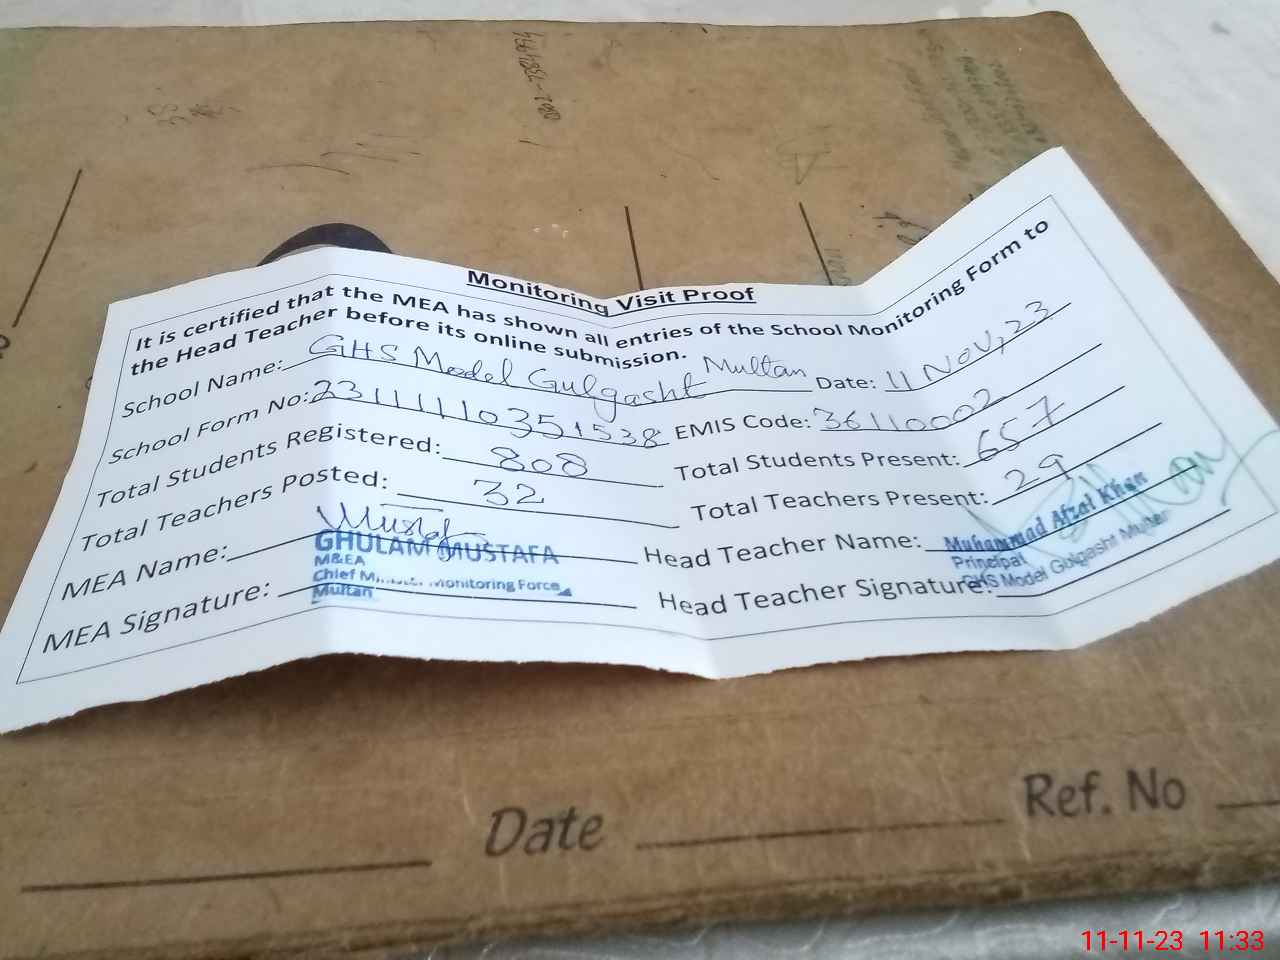 Monitoring Visit Proof
It is certified that the MEA has shown all entries of the School Monitoring Form to
the Head Teacher before its online submission.
School Name: GHS Model Gulgasht Multan Date: 11 Nov, 23
School Form No: 23111110351538 EMIS Code: 36110002
Total Students Registered: 808 Total Students Present: 657
Total Teachers Posted: 32 Total Teachers Present: 29
MEA Name: Mustafa Head Teacher Name: Muhammad Afzal Khan
GHULAM MUSTAFA
M&EA
Principal
MEA Signature: Chief Monitoring Force Head Teacher Signature: GHS Model Gulgasht Multan
Multan
Date Ref. No
11-11-23 11:33